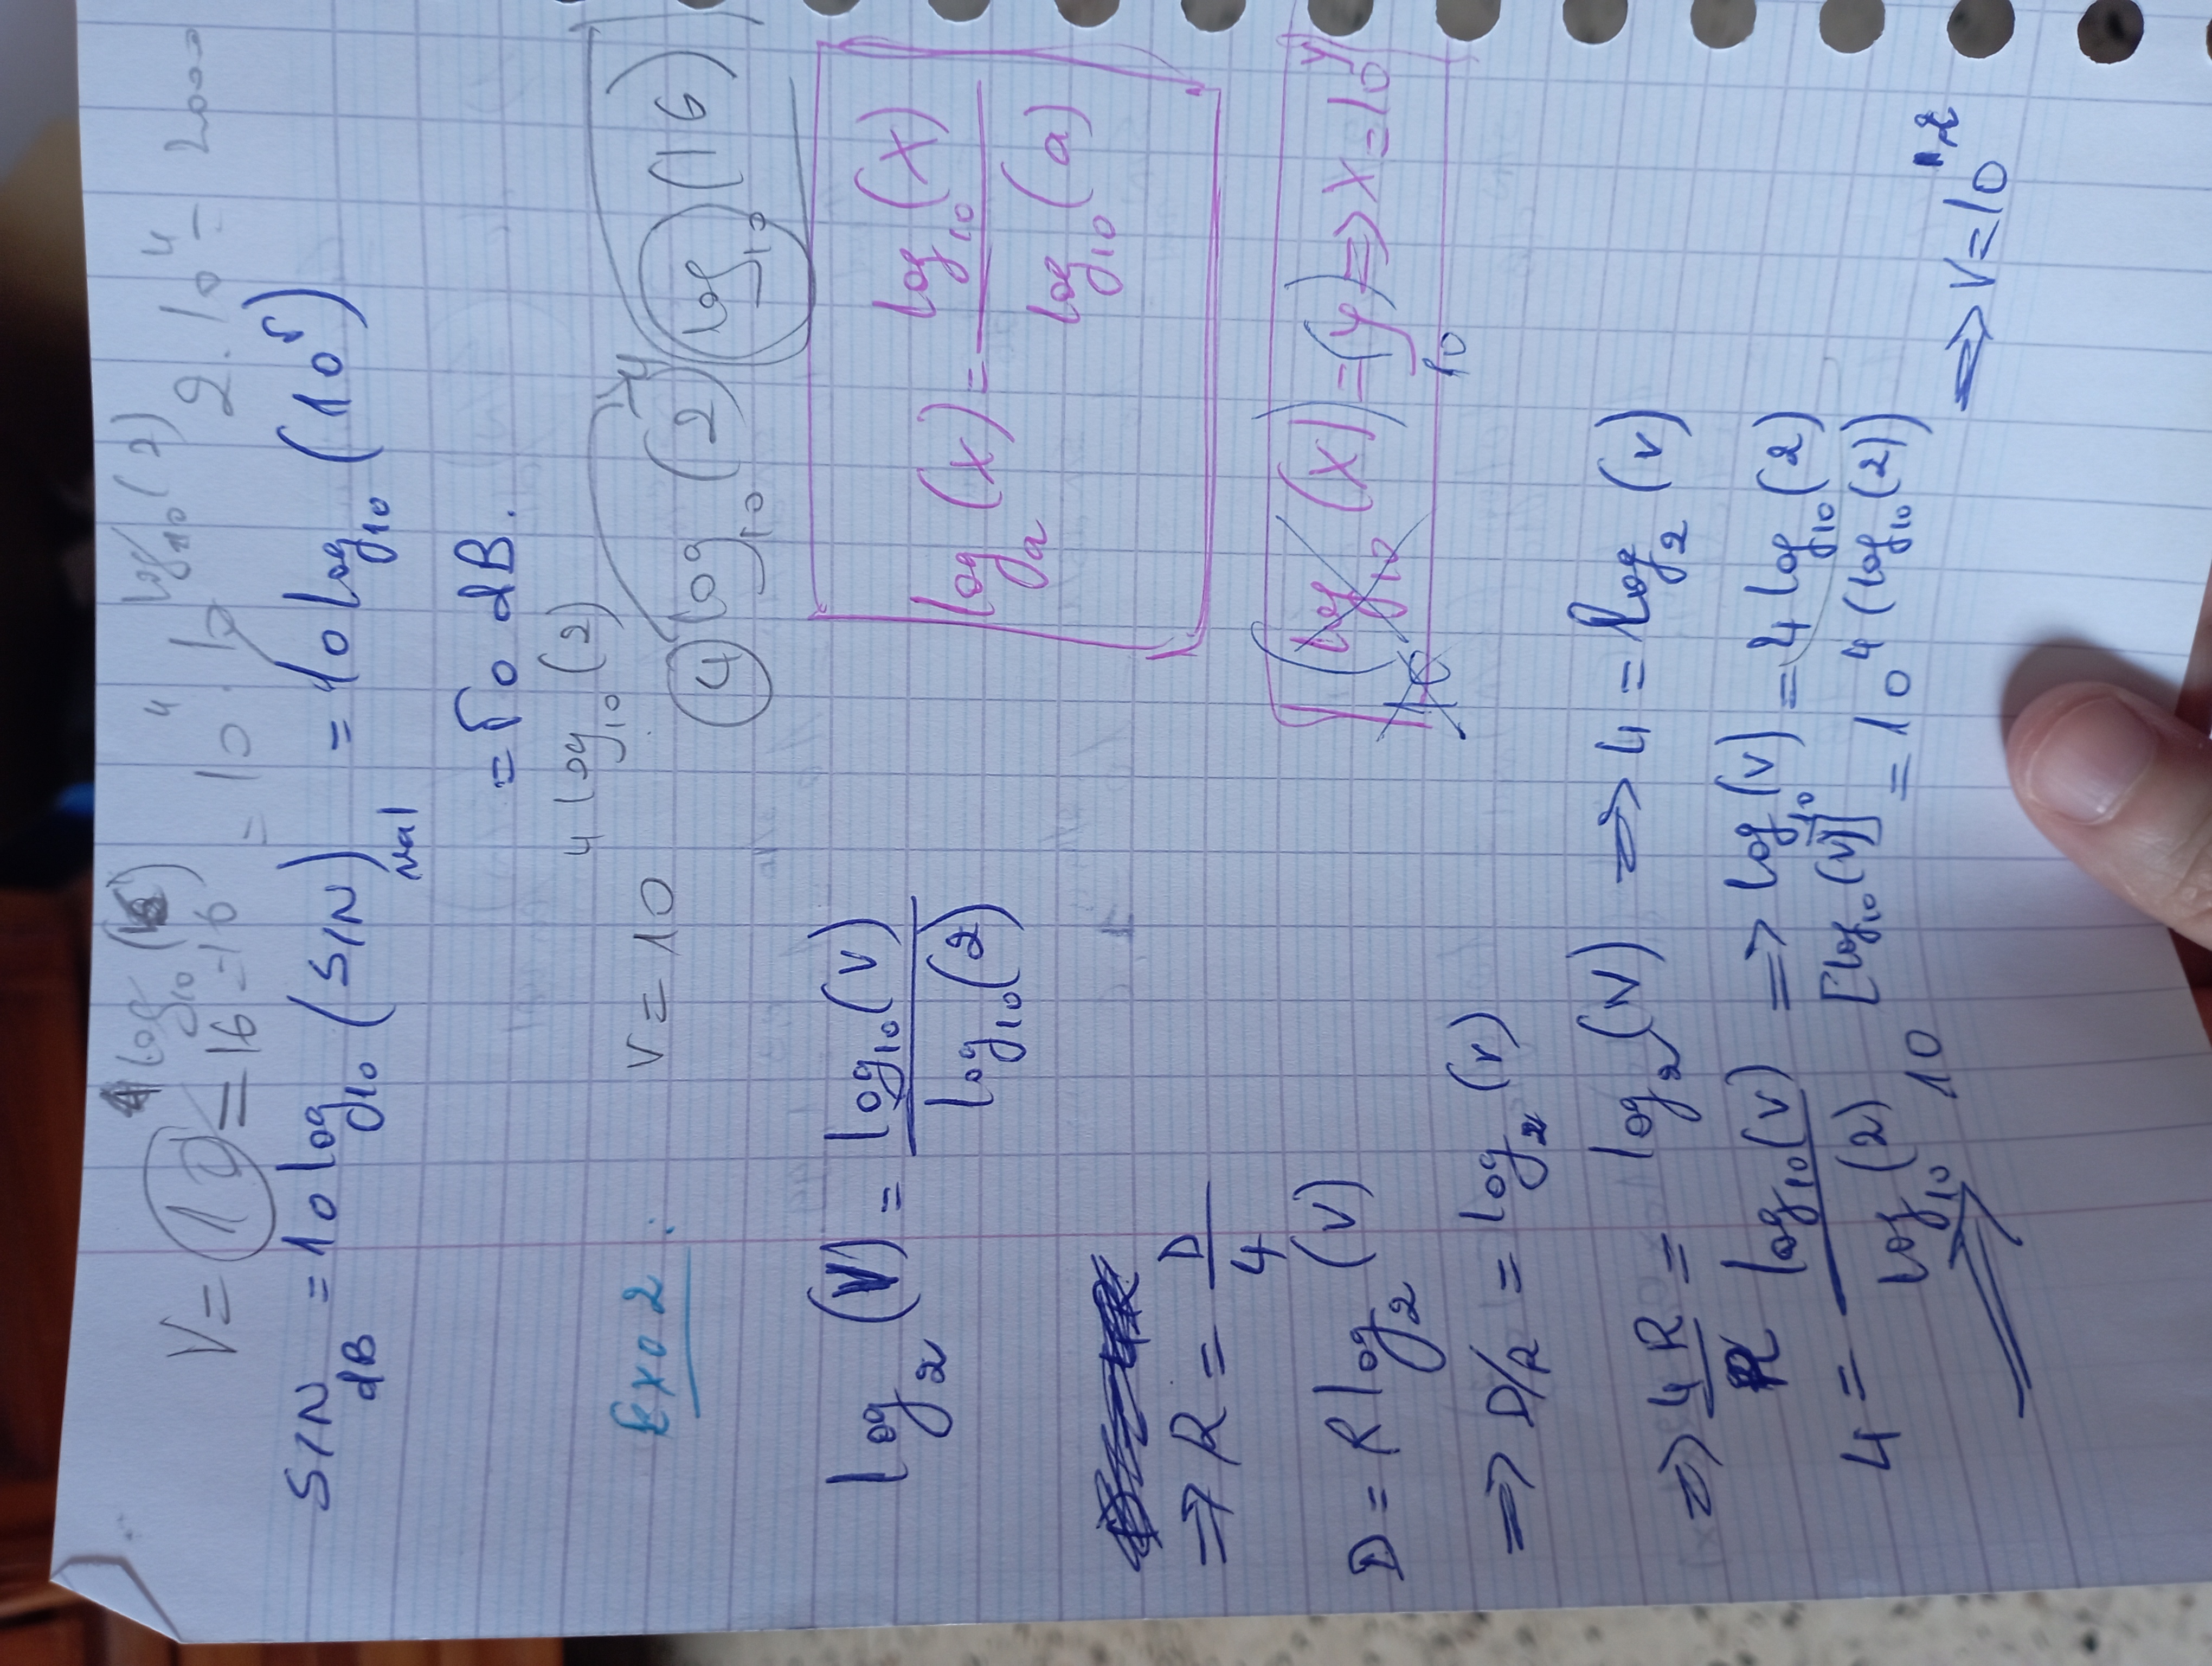 V = 10 log₁₀( ) = 16 = 16 = 10⁴ · 10^log₁₀(2) 2.10⁴ = 2000
S/N dB = 10 log₁₀ (S/N)val = 10 log₁₀ (10⁵)
= 50 dB.
4 log₁₀ (2)
Exo 2 : V = 10
4 log₁₀ (2)⁴ log₁₀ (16)
log₂ (V) = log₁₀(V) / log₁₀(2)
logₐ (x) = log₁₀(x) / log₁₀(a)
⇒ R = D / 4
(log₁₀ (x)) = (y) ⇒ x = 10^y
10 10
D = R log₂ (V)
⇒ D/R = log₂ (V)
⇒ 4R / R = log₂ (V) ⇒ 4 = log₂ (V)
4 = log₁₀(V) / log₁₀(2) ⇒ log₁₀(V) = 4 log₁₀(2)
⇒ 10^[log₁₀(V)] = 10^4(log₁₀(2))
⇒ V = 10^1,2